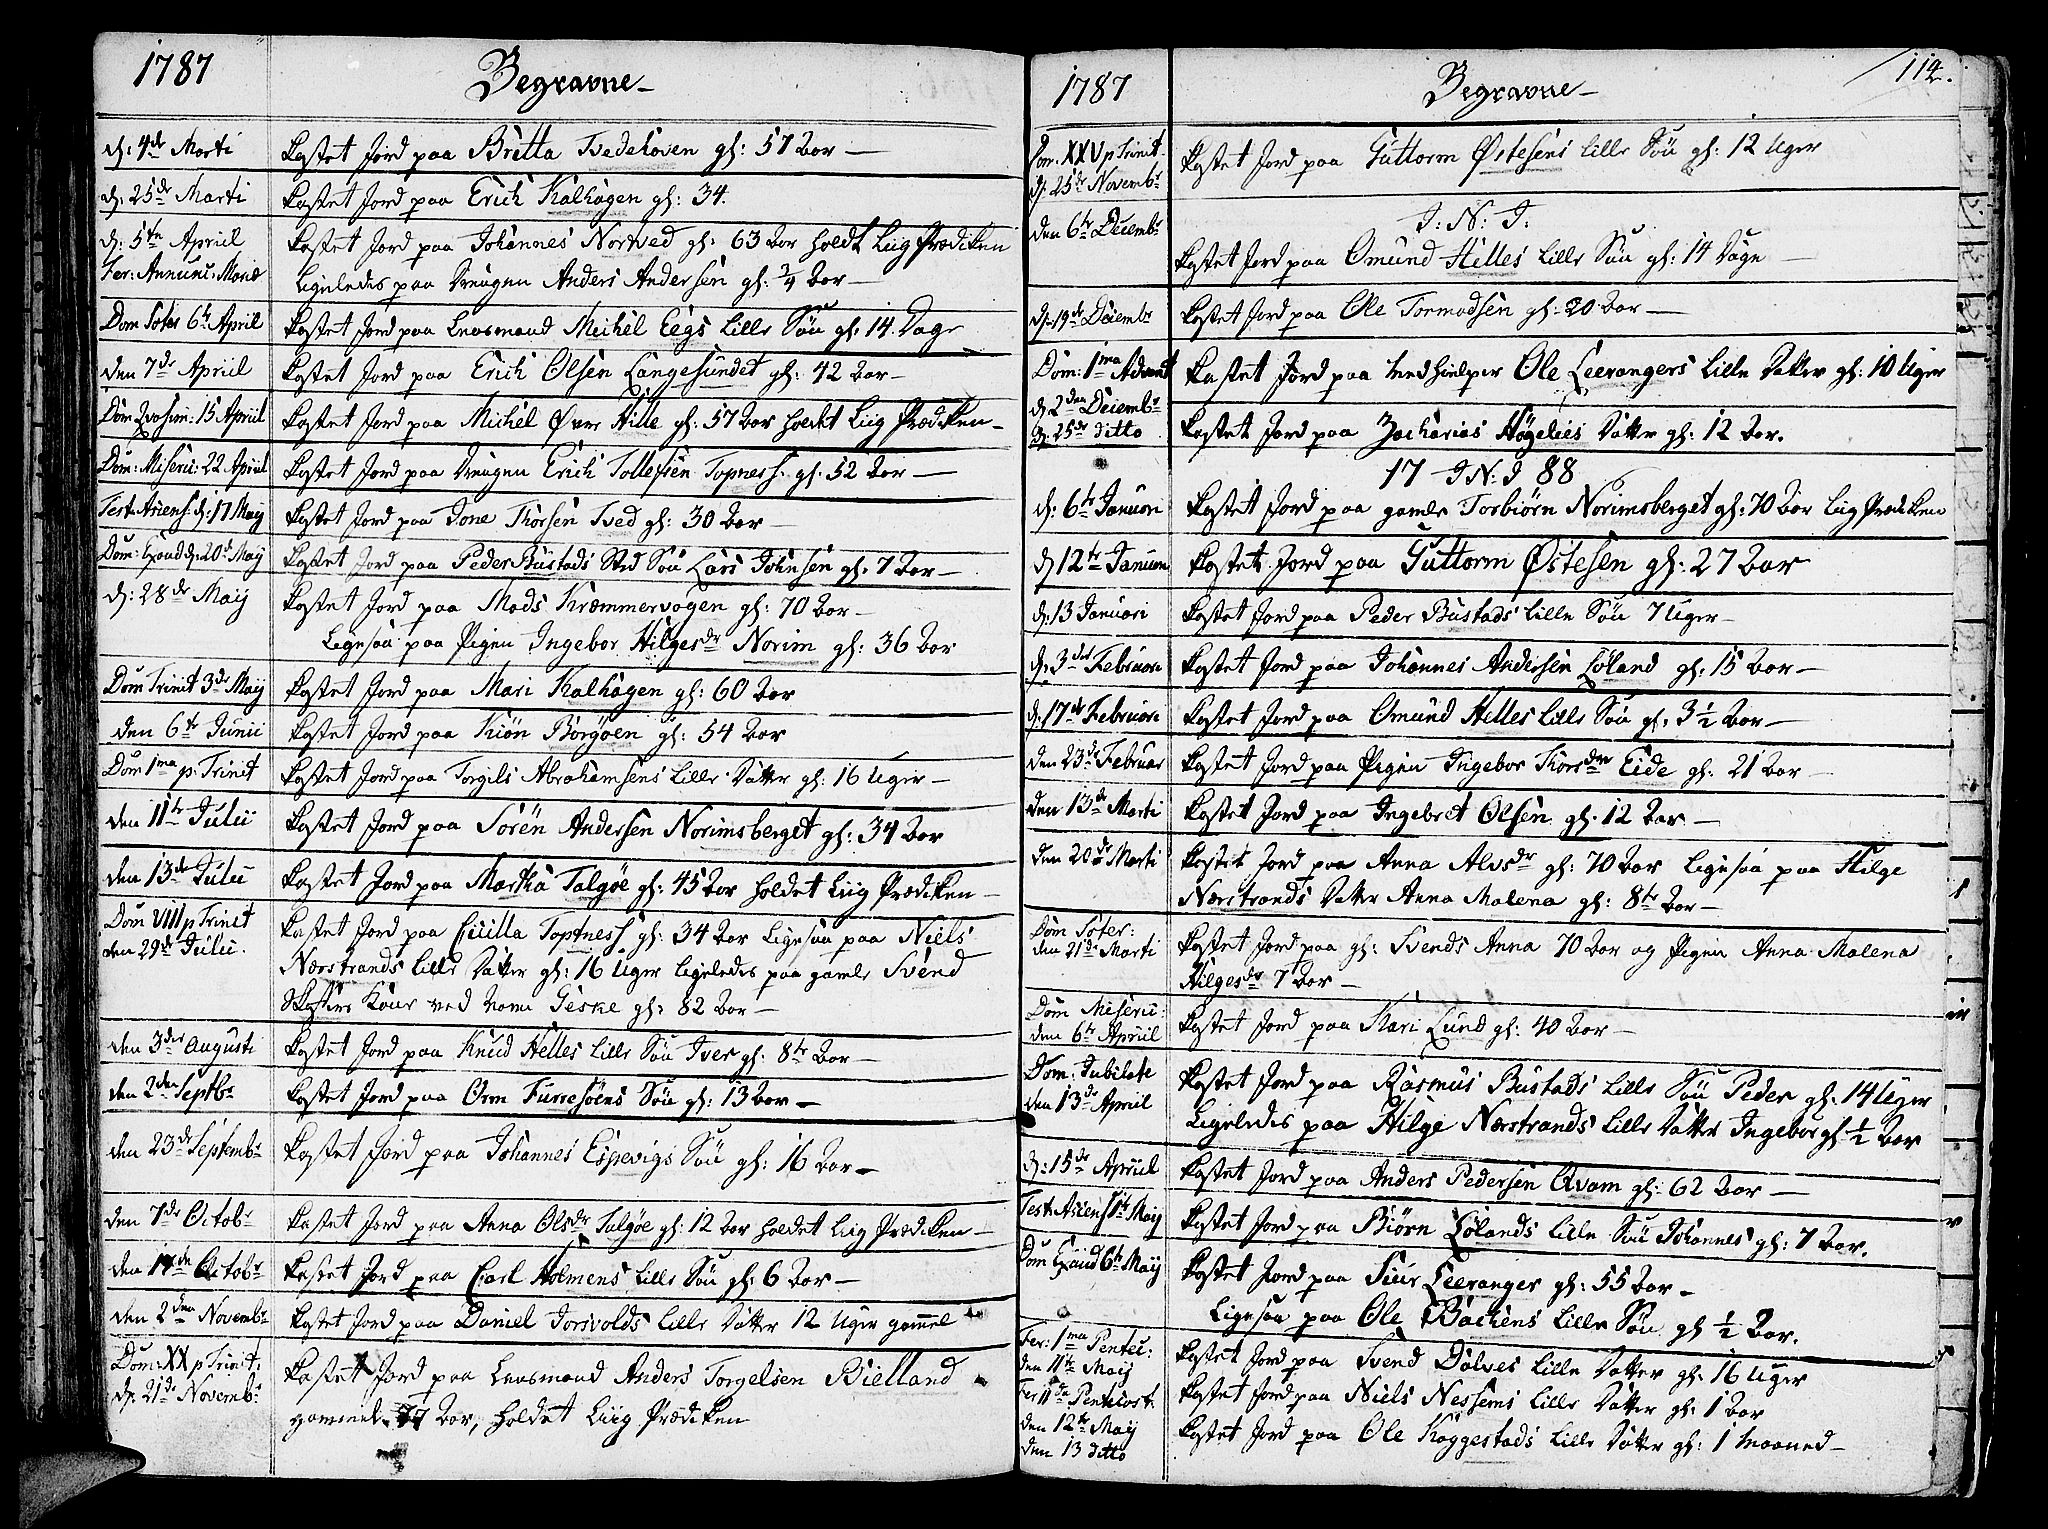 1787 Begravne
d: 4de Marti kastet Jord paa Britta Tvedehoven gl: 57 Aar
d: 25de Marti kastet Jord paa Erich Kalhagen gl: 34.
d: 5te Apriil kastet Jord paa Johannes Nortved gl: 63 Aar holdt Liig Prædiken
Fer: Annunt: Mariæ ligeledes paa Drengen Anders Andersen gl: 3/4 Aar
Dom Pōter 6te April kastet Jord paa Leensmand Michel Eegs lille Søn gl: 14 Dage
den 7de Apriil kastet Jord paa Erich Olsen Langesundet gl: 42 Aar
Dom Qvasim: 15 April kastet Jord paa Michel Øvre Hille gl: 57 Aar holdt Liig Prædiken
Dom: Miseric: 22 April kastet Jord paa Drengen Erich Tollefsen Topness gl: 52 Aar
Fest: Asiens: d: 17 Maÿ kastet Jord paa Tone Thorsen Tved gl: 30 Aar
Dom: Exaud d: 20d Maÿ kastet Jord paa Peder Bustads Sted Søn Lars Johnsen gl: 7 Aar
d: 28de Maÿ kastet Jord paa Mads Kræmmervogen gl: 70 Aar
Ligesaa paa Pigen Ingebor Hilgesdr Norim gl: 36 Aar
Dom Trinit 3de Maÿ kastet Jord paa Mari Kalhagen gl: 60 Aar
den 6te Junii kastet Jord paa Kiøn Borgøen gl: 54 Aar
Dom 1ma p. Trinit kastet Jord paa Torgils Abrahamsens lille Datter gl: 16 Uger
den 11te Julii kastet Jord paa Søren Andersen Norimsberget gl: 34 Aar
den 13de Julii kastet Jord paa Martha Talgøe gl: 45 Aar holdet Liig Prædiken
Dom VIII p Trinit kastet Jord paa Cicilla Toptness gl: 34 Aar ligesaa paa Niels
den 29de Julii. Nærstrands lille Datter gl: 16 Uger ligeledes paa gamle Svend
Kone ved Navn Geske gl: 82 Aar
den 3die Augusti kastet Jord paa Knud Helles lille Søn Iver gl: 8te Aar
den 2den Septbr kastet Jord paa Orm Furresøens Søn gl: 13 Aar
den 23de Septembr kastet Jord paa Johannes Espevigs Søn gl: 16 Aar
den 7de Octobr kastet Jord paa Anna Olsdr Talgøe gl: 12 Aar holdet Liig Prædiken
den 14de Octobr kastet Jord paa Carl Holmens lille Søn gl: 6 Aar
den 2den Novembr kastet Jord paa Daniel Torsvolds lille Datter 12 Uger gammel
Dom: XX p Trinit: kastet Jord paa Leensmand Anders Torgelsen Bielland
d: 21de Novembr gammel 77 Aar, holdet Liig Prædiken
1787 Begravne 112.
Dom: XXV p Trinit. kastet Jord paa Guttorm Østesens lille Søn gl: 12 Uger
d: 25de Novembr
I: N: I:
den 6te Decembr kastet Jord paa Omund Hilles lille Søn gl: 14 Dage
d: 19de Decembr kastet Jord paa Ole Tormodsen gl: 20 Aar
Dom: 1ma Advent kastet Jord paa Medhielper Ole Leerangers lille Datter gl: 10 Uger
d: 2den Decembr
d: 25de ditto kastet Jord paa Zacharias Høgelies Datter gl: 12 Aar.
17 I N: I 88
d: 6te Januari kastet Jord paa gamle Torbiørn Norimsberget gl: 70 Aar Liig Prædiken
d 12te Januari kastet Jord paa Guttorm Østesen gl: 27 Aar
d: 13 Januari kastet Jord paa Peder Bustads lille Søn 7 Uger
d: 3die Februari kastet Jord paa Johannes Andersen Løland gl: 15 Aar
d: 17de Februari kastet Jord paa Omund Hilles lille Søn gl: 3 1/2 Aar
den 23de Februar kastet Jord paa Pigen Ingebor Thorsdr Eide gl: 21 Aar
den 13de Marti kastet Jord paa Ingebret Olsen gl: 12 Aar
den 20de Marti kastet Jord paa Anna Alvsdr gl: 70 Aar ligesaa paa Hilge
Nærstrands Datter Anna Malena gl: 8te Aar
Dom Pōter: kastet Jord paa gl: Svends Anna 70 Aar og Pigen Anna Malena
den 21de Marti Hilgesdr 7 Aar
Dom Miseric: kastet Jord paa Mari Lund gl: 40 Aar
den 6te Apriil
Dom: Jubilate kastet Jord paa Rasmus Bustads lille Søn Peder gl: 14 Uger
den 13de Apriil Ligeledes paa Hilge Nærstrands lille Datter Ingebor gl: 1/2 Aar
d: 15de Apriil kastet Jord paa Anders Pedersen Qvam gl: 62 Aar
Fest: Asiens 1te Maÿ kastet Jord paa Biørn Lølands lille Søn Johannes gl: 7 Aar.
Dom Exaud 6te Maÿ kastet Jord paa Siur Leeranger gl: 55 Aar
Ligesaa paa Ole Backens lille Søn gl 1/2 Aar.
Fer: 1ma Pentec: kastet Jord paa Svend Dalves lille Datter gl: 16 Uger
den 11te Maÿ
Fer IIda Pentecost: kastet Jord paa Niels Nessems lille Datter gl: 1 Aar
den 12te Maÿ
den 13 ditto kastet Jord paa Ole Kaggestads lille Datter gl: 1 Maaned